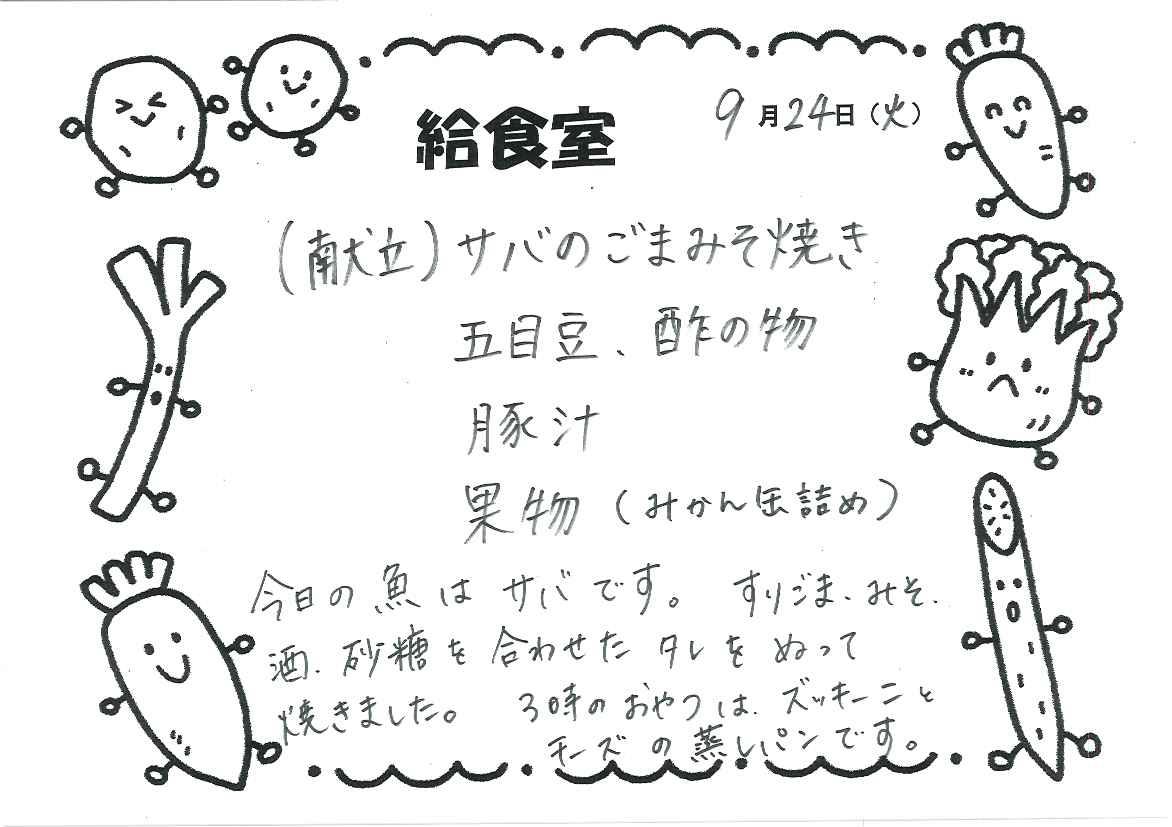 給食室
9月24日（火）
（献立）サバのごまみそ焼き
五目豆、酢の物
豚汁
果物（みかん缶詰め）
今日の魚はサバです。 すりごま、みそ、
酒、砂糖を合わせたタレをぬって
焼きました。 3時のおやつは、ズッキーニと
チーズの蒸しパンです。